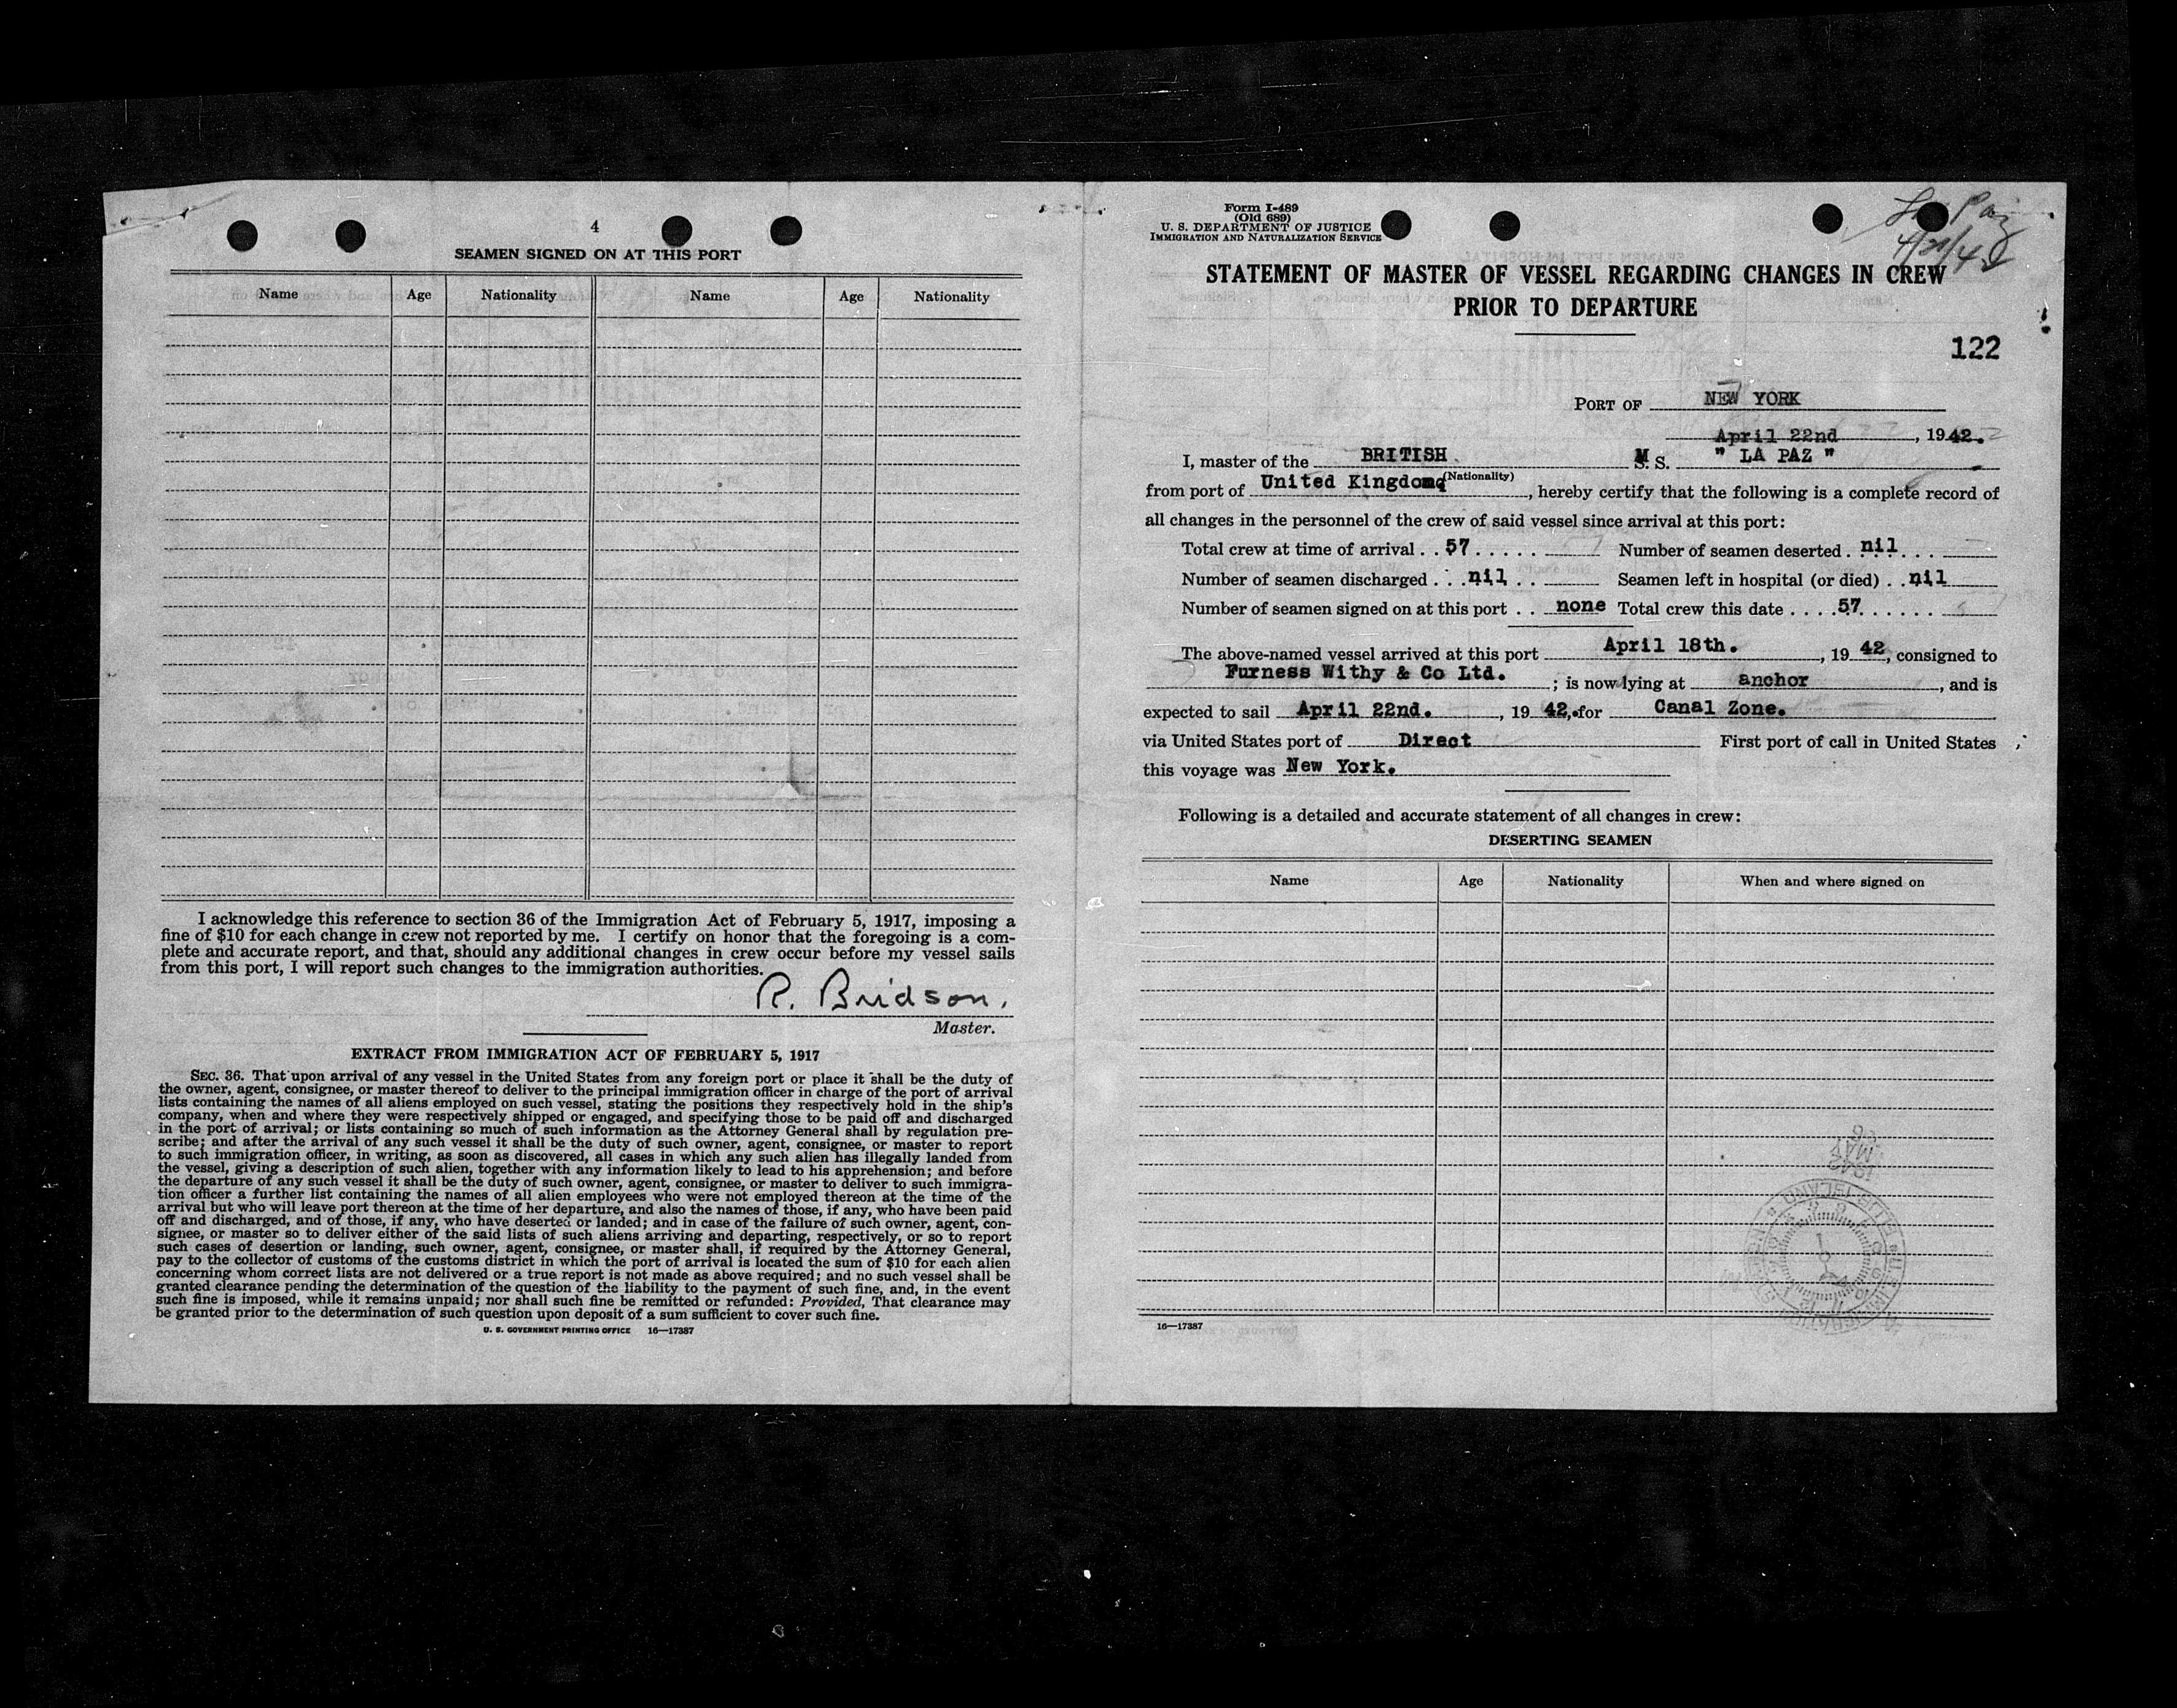 4
SEAMEN SIGNED ON AT THIS PORT
Name Age Nationality Name Age Nationality
I acknowledge this reference to section 36 of the Immigration Act of February 5, 1917, imposing a
fine of $10 for each change in crew not reported by me. I certify on honor that the foregoing is a com-
plete and accurate report, and that, should any additional changes in crew occur before my vessel sails
from this port, I will report such changes to the immigration authorities.
R. Bridson.
Master.
EXTRACT FROM IMMIGRATION ACT OF FEBRUARY 5, 1917
SEC. 36. That upon arrival of any vessel in the United States from any foreign port or place it shall be the duty of
the owner, agent, consignee, or master thereof to deliver to the principal immigration officer in charge of the port of arrival
lists containing the names of all aliens employed on such vessel, stating the positions they respectively hold in the ship's
company, when and where they were respectively shipped or engaged, and specifying those to be paid off and discharged
in the port of arrival; or lists containing so much of such information as the Attorney General shall by regulation pre-
scribe; and after the arrival of any such vessel it shall be the duty of such owner, agent, consignee, or master to report
to such immigration officer, in writing, as soon as discovered, all cases in which any such alien has illegally landed from
the vessel, giving a description of such alien, together with any information likely to lead to his apprehension; and before
the departure of any such vessel it shall be the duty of such owner, agent, consignee, or master to deliver to such immigra-
tion officer a further list containing the names of all alien employees who were not employed thereon at the time of the
arrival but who will leave port thereon at the time of her departure, and also the names of those, if any, who have been paid
off and discharged, and of those, if any, who have deserted or landed; and in case of the failure of such owner, agent, con-
signee, or master so to deliver either of the said lists of such aliens arriving and departing, respectively, or so to report
such cases of desertion or landing, such owner, agent, consignee, or master shall, if required by the Attorney General,
pay to the collector of customs of the customs district in which the port of arrival is located the sum of $10 for each alien
concerning whom correct lists are not delivered or a true report is not made as above required; and no such vessel shall be
granted clearance pending the determination of the question of the liability to the payment of such fine, and, in the event
such fine is imposed, while it remains unpaid; nor shall such fine be remitted or refunded: Provided, That clearance may
be granted prior to the determination of such question upon deposit of a sum sufficient to cover such fine.
U. S. GOVERNMENT PRINTING OFFICE 16—17387
Form I-489
(Old 689)
U. S. DEPARTMENT OF JUSTICE
IMMIGRATION AND NATURALIZATION SERVICE
La Paz
STATEMENT OF MASTER OF VESSEL REGARDING CHANGES IN CREW
PRIOR TO DEPARTURE
122
PORT OF NEW YORK
April 22nd, 1942.
I, master of the BRITISH M. S. " LA PAZ "
(Nationality)
from port of United Kingdom, hereby certify that the following is a complete record of
all changes in the personnel of the crew of said vessel since arrival at this port:
Total crew at time of arrival . . 57 . . . . . Number of seamen deserted . nil . . .
Number of seamen discharged . . . nil . . Seamen left in hospital (or died) . . nil
Number of seamen signed on at this port . . none Total crew this date . . . . 57 . . . . . .
The above-named vessel arrived at this port April 18th., 19 42, consigned to
Furness Withy & Co Ltd. ; is now lying at anchor, and is
expected to sail April 22nd., 19 42, for Canal Zone.
via United States port of Direct First port of call in United States
this voyage was New York.
Following is a detailed and accurate statement of all changes in crew:
DESERTING SEAMEN
Name Age Nationality When and where signed on
16—17387